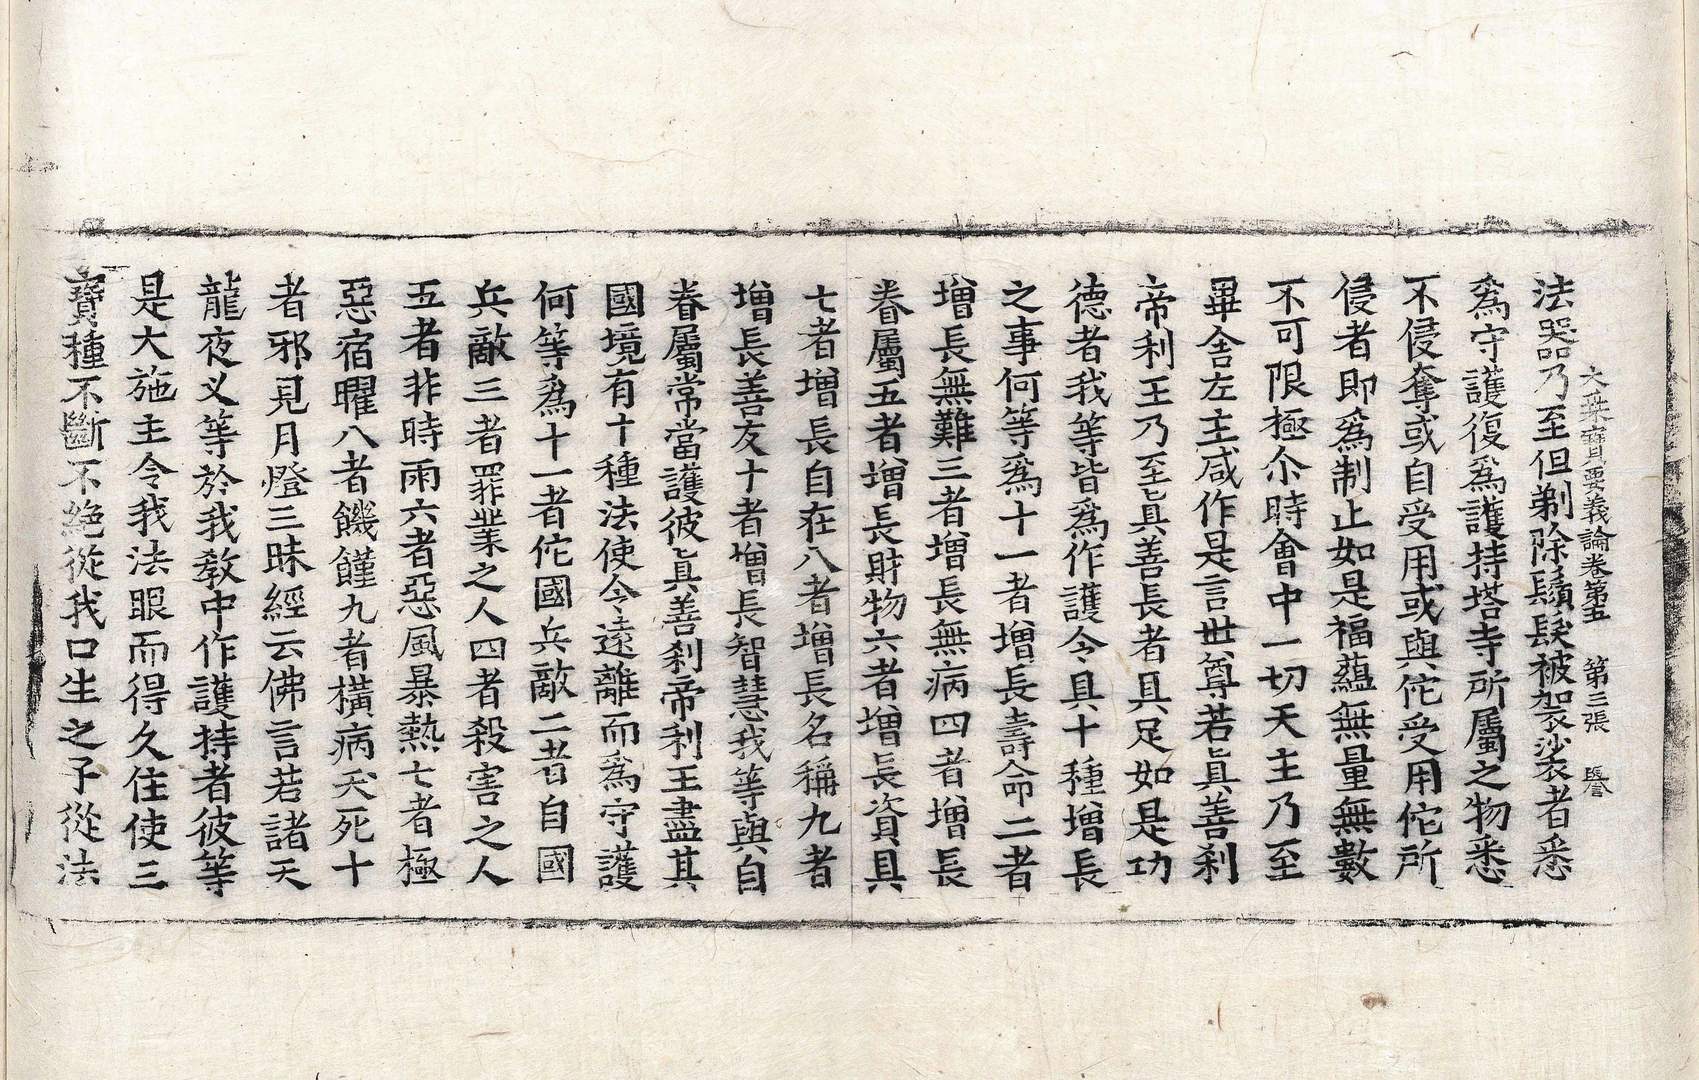 大乘寶要義論卷第五 第三張 譽
法器乃至但剃除鬚髮被袈裟者悉
爲守護復爲護持塔寺所屬之物悉
不侵奪或自受用或與佗受用佗所
侵者即爲制止如是福蘊無量無數
不可限極尒時會中一切天主乃至
畢舍左主咸作是言世尊若眞善剎
帝利王乃至眞善長者具足如是功
德者我等皆爲作護今具十種增長
之事何等爲十一者增長壽命二者
增長無難三者增長無病四者增長
眷屬五者增長財物六者增長資具
七者增長自在八者增長名稱九者
增長善友十者增長智慧我等與自
眷屬常當護彼眞善剎帝利王盡其
國境有十種法使令遠離而爲守護
何等爲十一者佗國兵敵二者自國
兵敵三者罪業之人四者殺害之人
五者非時雨六者惡風暴熱七者極
惡宿曜八者饑饉九者橫病夭死十
者邪見月燈三昧經云佛言若諸天
龍夜叉等於我教中作護持者彼等
是大施主令我法眼而得久住使三
寶種不斷不絕從我口生之子從法